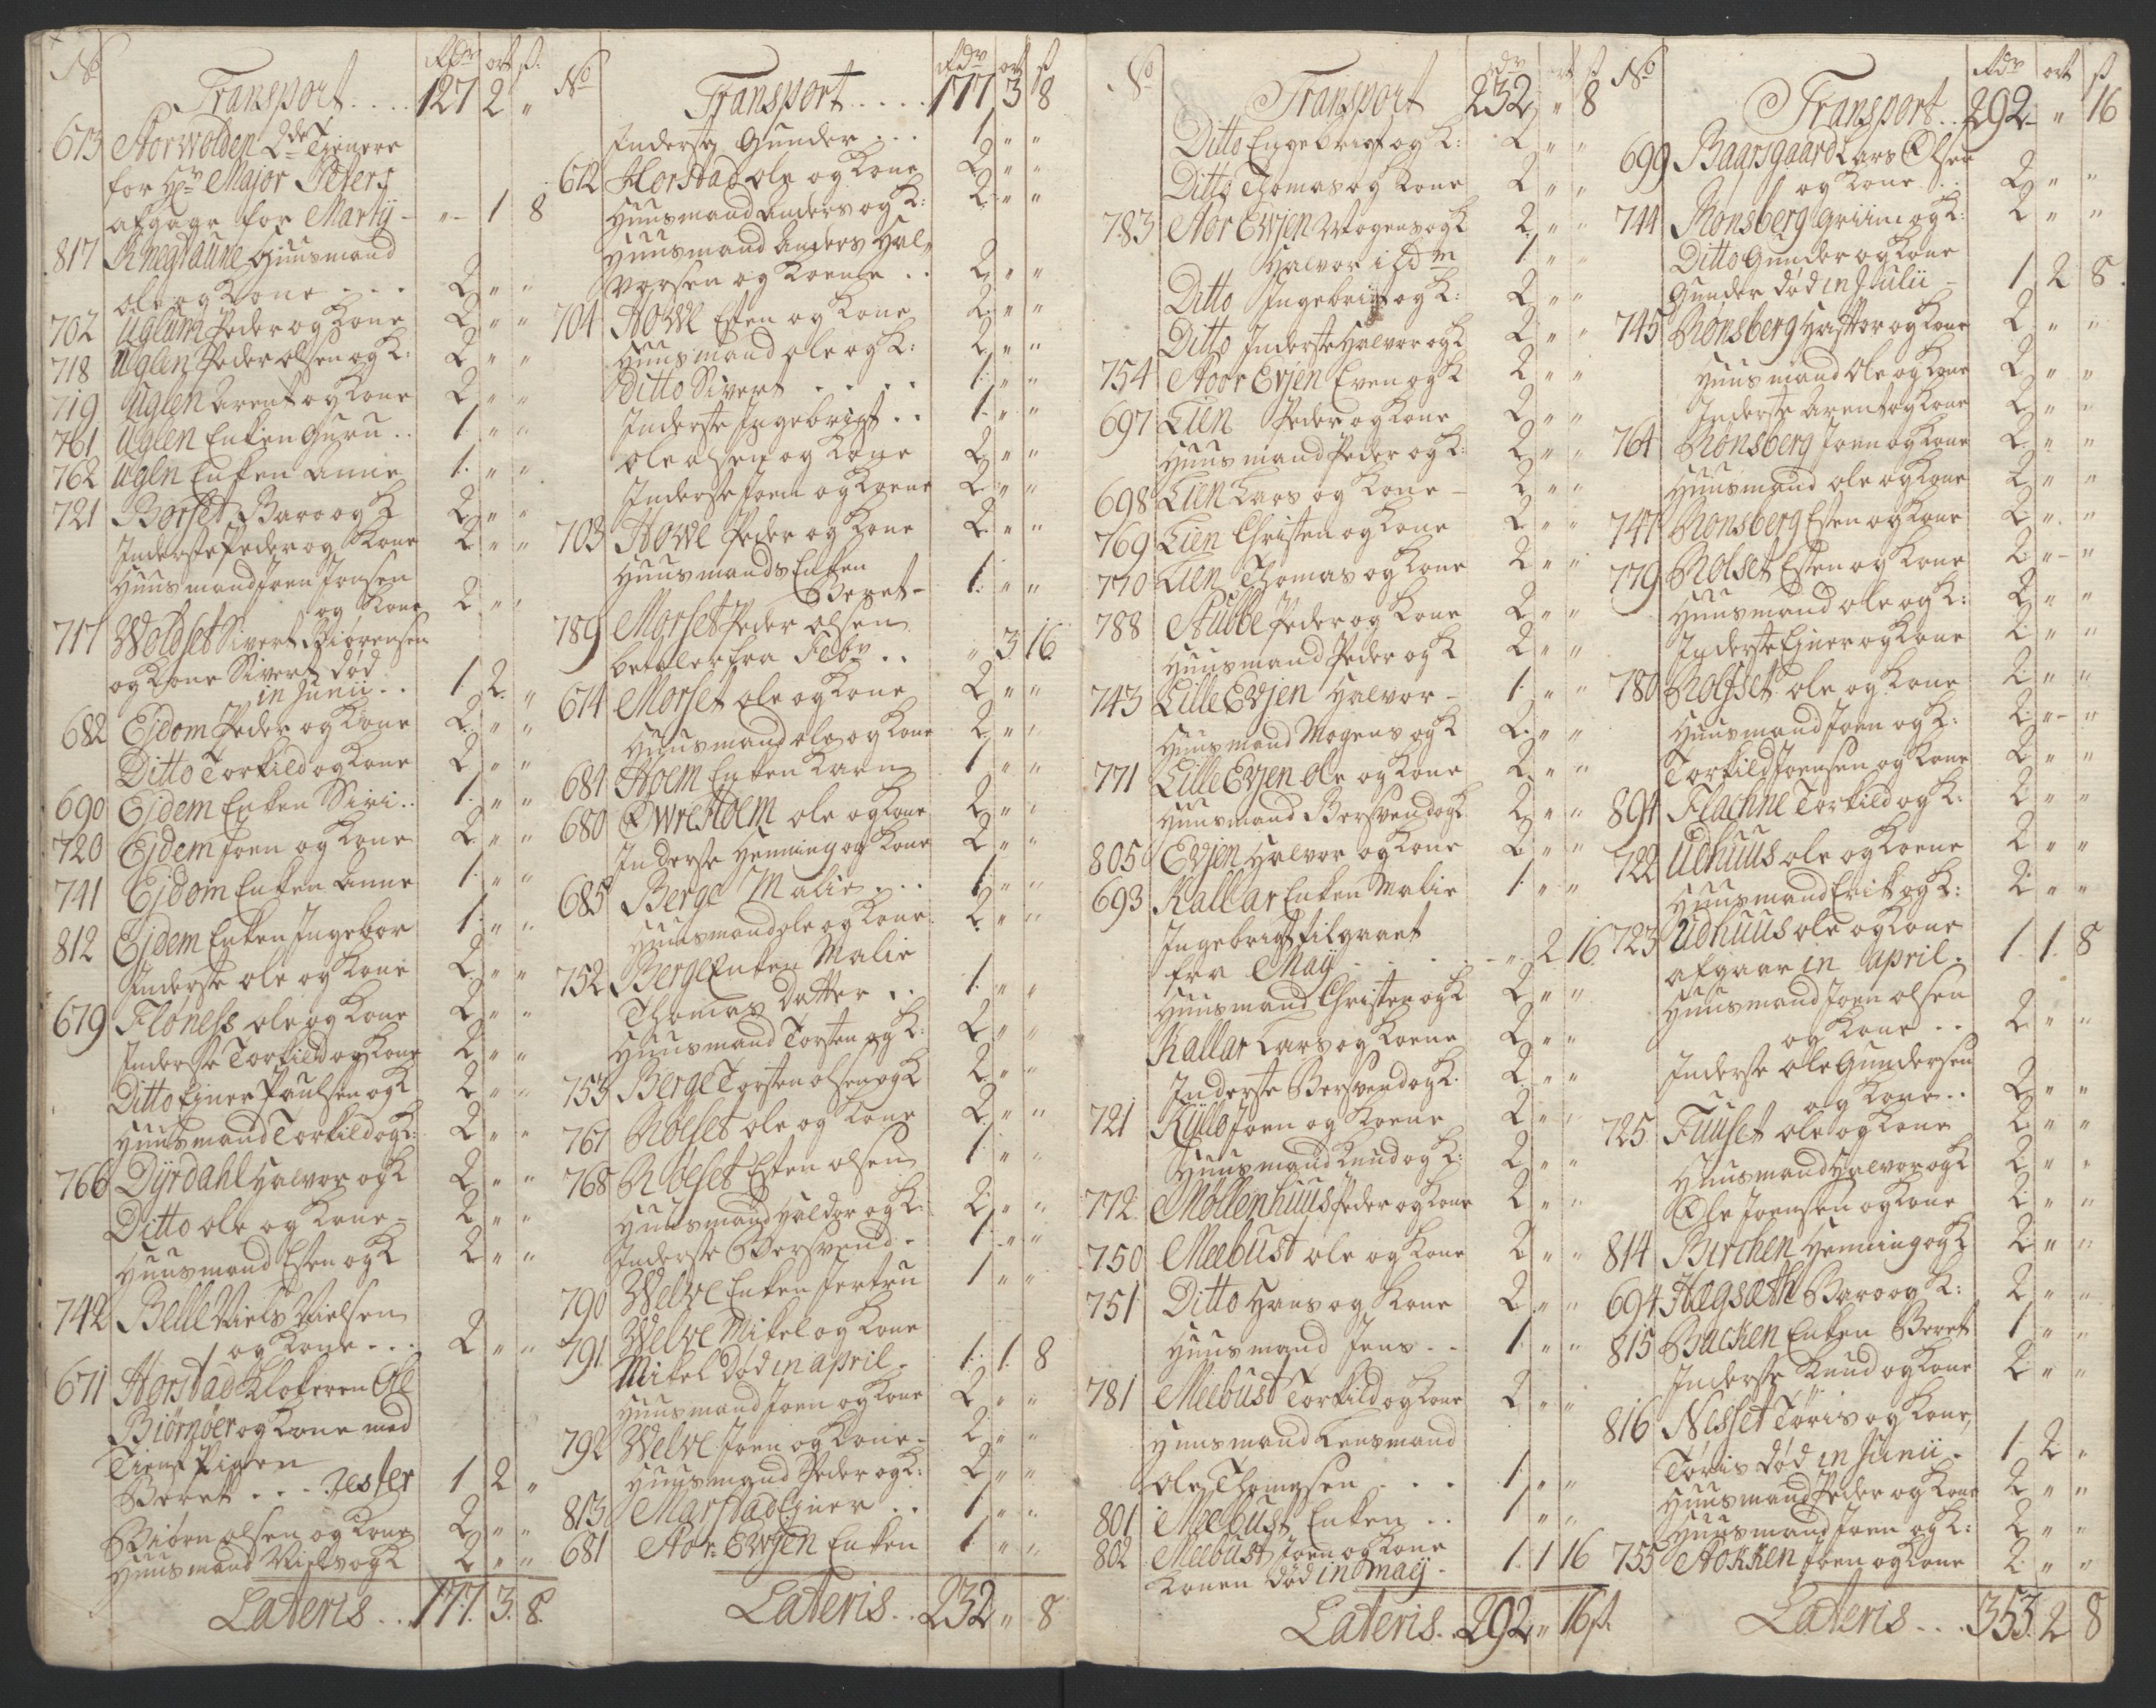 No Rdr ort s.
Transport.... 127 2 "
673 Storwolden 2de Tienere
for Hr Major Peters
afgage for Martij - "- 1 8
817 Knegtaune Huusmand
ole og Kone - - - 2 " "
702 Uglum Peder og Kone 2 " "
718 Uglen Peder olsen og K: 2 " "
719 Uglen Arent og Kone 2 " "
761 Uglen Enken Guru .. 1 " "
762 Uglen Enken Anne 1. " "
721 Borset Baro og K 2 " "
Inderste Peder og Kone 2 " "
Huusmand Joen Jonsen
og Kone 2 " "
717 Woldset Sivert Biörensen
og Kone Sivert död
in Junii . . 1 2. "
682 Ejdom Peder og Kone 2 " "
Ditto Torkild og Kone 2 " "
690 Ejdem Enken Siri .. 1. " "
720 Ejdem Joen og Kone 2 " "
741 Ejdom Enken Anne 1. " "
812 Ejdem Enken Ingebor 1. " "
Inderste ole og Kone 2 " "
679 Flöness ole og Kone 2 " "
Inderste Torkild og Kone 2 " "
Ditto Einer Paulsen og K 2 " "
Huusmand Torkild og K: 2 " "
766 Dÿrdahl Halvor og K 2 " "
Ditto ole og Kone - 2 " "
Huusmand Esten og K 2 " "
742 Belle Niels Nielsen
og Kone . . . 2 " "
671 Horstad Klokeren Ol
Biörnöer og Kone med
Tienst Pigen
Beret . . - . Jester 1 2 "
Biörn olsen og Kone 2 " "
Huusmand Niels og K 2 " "
Lateris . . 177. 3. 8.
No Rdr ort s
Transport ..... 177 3 8
Inderste Gunder . . . 1 " "
672 Horstad ole og Kone 2 " "
Huusmand Anders og K: 2. " "
Huusmand Anders Hal"
vorsen og Koene . . 2 " "
704 Howe Esten og Kone 2. " "
Huusmand ole og K: 2 " "
Ditto Sivert . . . . 1. " "
Inderste Ingebrigt . . 1. " "
Ole olsen og Kone 2 " "
Inderste Joen og Koene 2 " "
703 Howe Peder og Kone 2. " "
Huusmands Enken
Beret - 1. " "
789 Morset Peder olsen
betaler fra Febr . . " 3 16
674 Morset ole og Kone 2 " "
Huusmand ole og Kone 2 " "
684 Hoem Enken Karn 1 " "
680 Öwre Hoem ole og Kone 2 " "
Inderste Henning og Kone 2 " "
685 Berge Malie . . . 1 " "
Huusmand ole og Kone 2. " "
752 Berge Enken Malie
Thomas Datter . . 1. " "
Huusmand Torsten og K: 2 " "
753 Berge Torsten olsen og K 2 " "
767 Rolset ole og Kone 2 " "
768 Rolset Esten olsen 1 " "
Huusmand Haldor og K: 2. " "
Inderste Bersvend - 1 " "
790 Welve Enken Jertru 1 " "
791 Welve Mikel og Kone
Mikel Död in april - 1. 1. 8
Huusmand Joen og Kone 2 " "
792 Welve Joen og Kone - 2. " "
Huusmand Peder og K: 2 " "
813 Marstad Einer . . 1 " "
681 Stor: Ewjen Enken 1 " "
Lateris . . 232 " 8
No Rdr ort s
Transport 232 " 8
Ditto Engebrigt og K: 2 " "
Ditto Thomas og Kone 2 " "
783 Stor Ewjen Mogens og K 2. " "
Halvor i Ldm 1. " "
Ditto Ingebrigt og K: 2 " "
Ditto Inderste Halvor og K 2 " "
754 Stoor Evjen Even og K 2 " "
697 Lien Peder og Kone 2 " "
Huusmand Peder og K: 2 " "
698 Lien Lars og Kone - 2 " "
769 Lien Christen og Kone 2 " "
770 Lien Thomas og Kone 2 " "
788 Stubbe Peder og Kone 2 " "
Huusmand Peder og K 2 " "
743 Lille Evjen Halvor - 1. " "
Huusmand Mogens og K 2. " "
771 Lille Evjen ole og Kone 2. " "
Huusmand Bersvend og K 2 " "
805 Evjen Halvor og Kone 2 " "
693 Kallar Enken Malie 1. " "
Ingebrigt tilgaaet
fra Maij . . . . - " . 2 16
Huusmand Christen og K 2 " "
Kallar Lars og Koene 2 " "
Inderste Bersvend og K: 2. " "
721 Küllo Joen og Koene 2 " "
Huusmand Knud og K: 2 " "
772 Möllenhuus Peder og Kone 2 " "
750 Meebust ole og Kone 2 " "
751 Ditto Hans og Kone 2 " "
Huusmand Jens . . 1. " "
781 Meebust Torkild og Kone 2 " "
Huusmand Lensmand
ole Thomesen . . . 1. " "
801 Meebust Enken . . 1 " "
802 Meebust Joen og Kone
Konen Död in maij - 1. 1 16
Lateris . . 292 " 16 s.
No Rdr ort s
Transport . . 292. " 16
699 Baarsgaard Lars Olsen
og Kone . . 2 " "
744 Ronsberg Griim og K: 2 " "
Ditto Gunder og Kone
Gunder död in Julii - 1. 2 8.
745 Ronsberg Hastor og Kone 2 " "
Huusmand Ole og Kone 2 " "
Inderste Arent og Kone 2 " "
764 Ronsberg Joen og Kone 2 " "
Huusmand ole og Kone 2 " "
747 Ronsberg Esten og Kone 2. " "
779 Rolset Esten og Kone 2. " - "
Huusmand ole og K: 2 " "
Inderste Einer og Kone 2. " "
780 Rolfset ole og Kone 2. " "
Huusmand Joen og K: 2. " - "
Torkild Joensen og Kone 2 " "
894 Flackne Torkild og K: 2. " "
722 Udhuus ole og Koene 2 " "
Huusmand Erik og K: 2. " "
723 Udhuus ole og Kone
afgaar in april . 1. 1. 8
Huusmand Joen olsen
og Kone . . 2 " "
Inderste ole Gundersen
og Kone . . 2 " "
725 Fuuset ole og Kone 2 " "
Huusmand Halvor og K 2 " "
Ole Joensen og Kone 2 " "
814 Birchen Henning og K 2. " "
694 Hagsæth Baro og K: 2. " "
815 Backen Enken Beret 1 " "
Inderste Knud og Kone 2. " "
816 Nesset Töris og Kone,
Töris död in Junii - 1. 2 "
Huusmand Peder og Kone 2 " "
Huusmand Joen og K: 2 " "
755 Stokken Joen og Kone 2. " "
Lateris . . . 353. 2 8